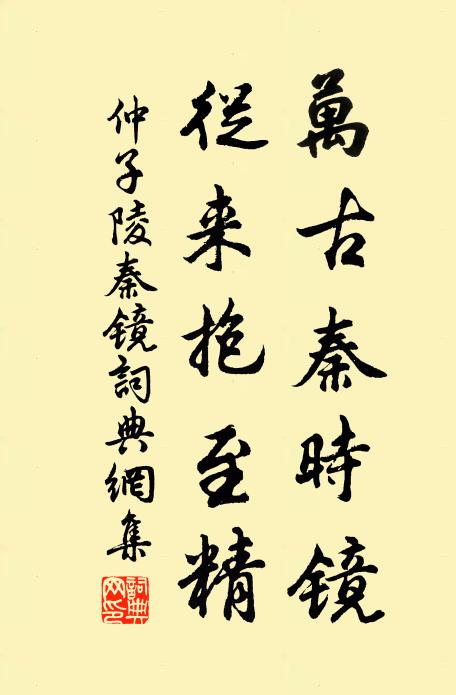 萬古秦時鏡
從来抱至精
仲子陵秦鏡詞典網集
詞典網印